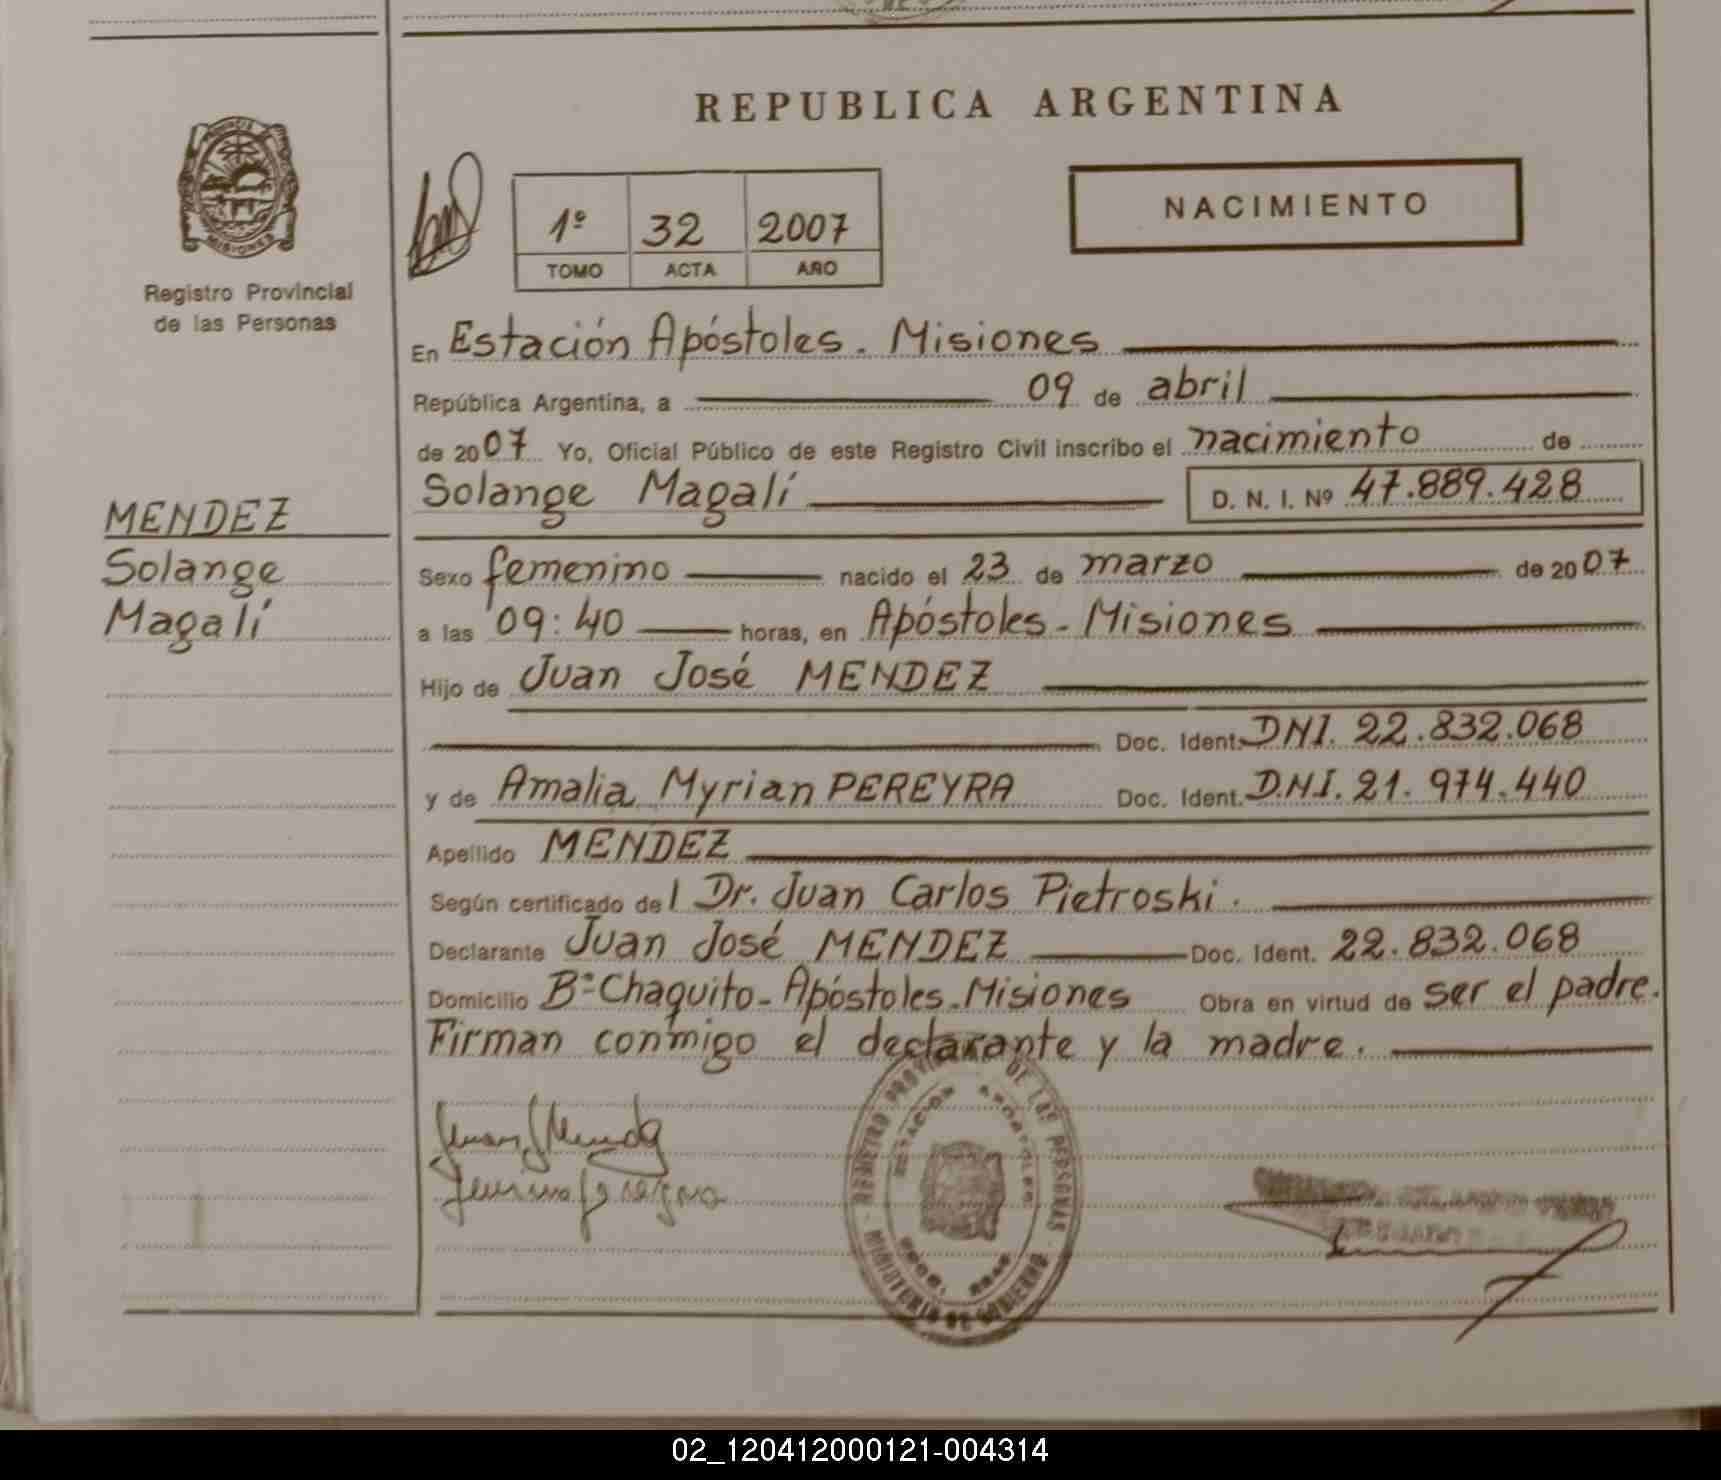 REPUBLICA ARGENTINA
MISIONES
Registro Provincial
de las Personas
1º 32 2007
TOMO ACTA AÑO
NACIMIENTO
En Estación Apóstoles. Misiones
República Argentina, a 09 de abril
de 2007 Yo, Oficial Público de este Registro Civil inscribo el nacimiento de
Solange Magalí D. N. I. Nº 47.889.428
MENDEZ
Solange
Magalí
Sexo femenino nacido el 23 de marzo de 2007
a las 09:40 horas, en Apóstoles - Misiones
Hijo de Juan José MENDEZ
Doc. Ident. DNI. 22.832.068
y de Amalia Myrian PEREYRA Doc. Ident. D.N.I. 21.974.440
Apellido MENDEZ
Según certificado del Dr. Juan Carlos Pietroski.
Declarante Juan José MENDEZ Doc. Ident. 22.832.068
Domicilio Bº Chaquito - Apóstoles - Misiones Obra en virtud de ser el padre.
Firman conmigo el declarante y la madre.
REGISTRO PROVINCIAL DE LAS PERSONAS
ESTACION APOSTOLES
MINISTERIO DE GOBIERNO
02_120412000121-004314